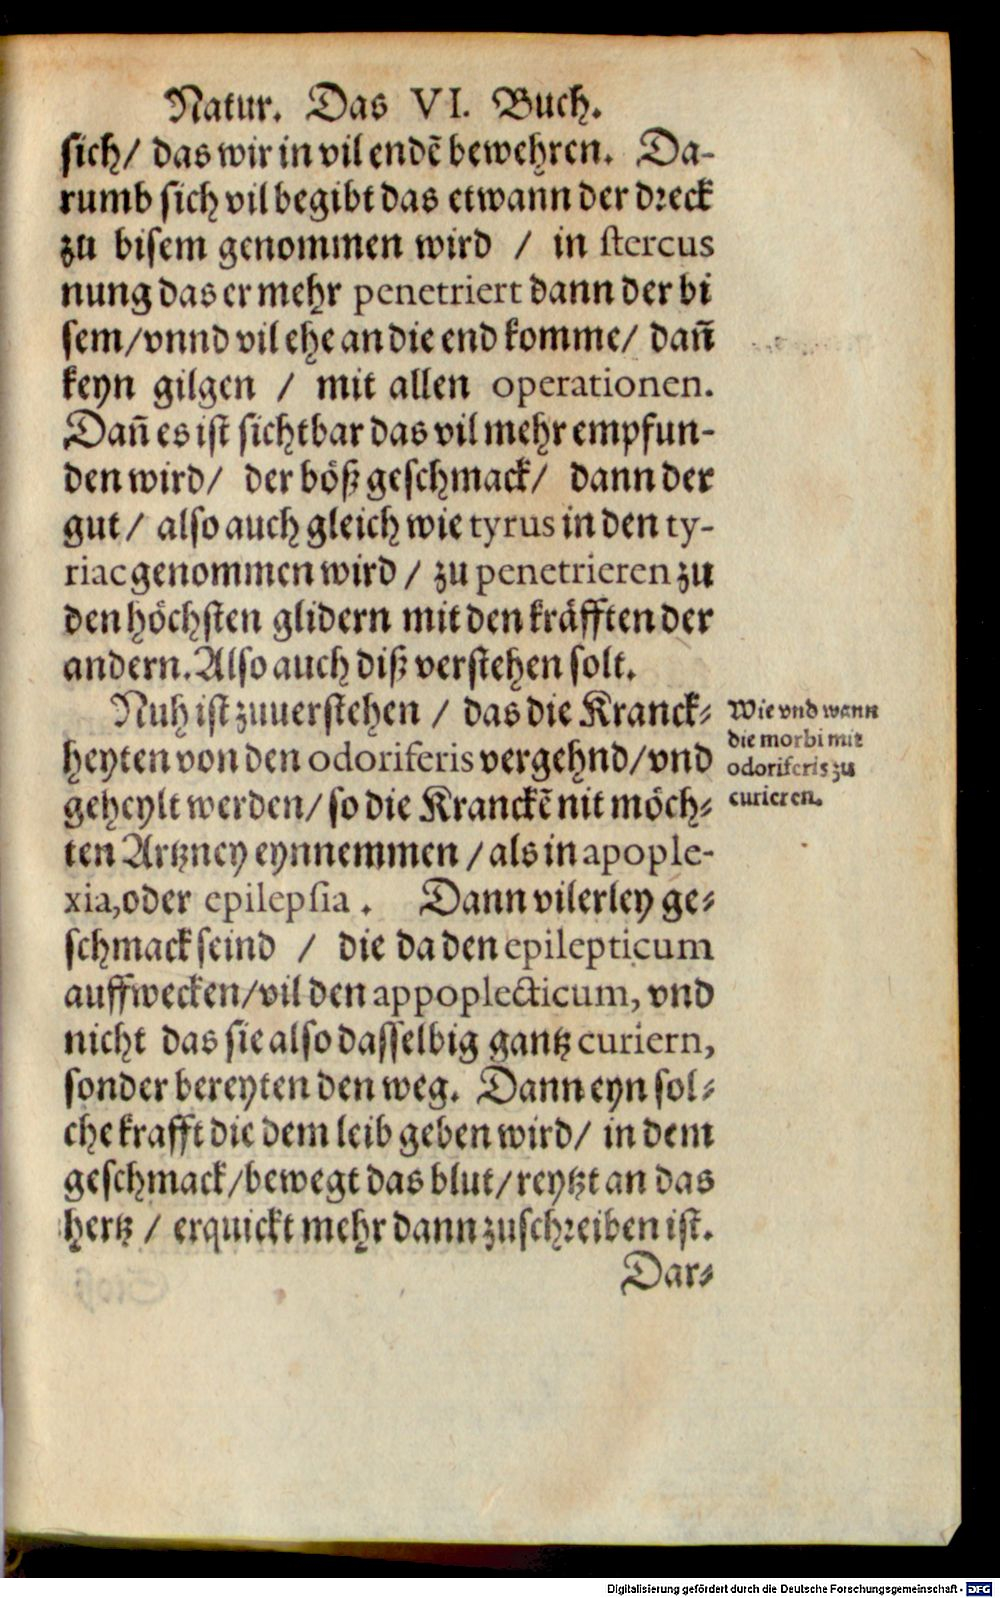 Natur. Das VI. Buch.
sich/ das wir in vil endẽ bewehren. Da-
rumb sich vil begibt das etwann der dreck
zu bisem genommen wird / in stercus
nung das er mehr penetriert dann der bi
sem/vnnd vil ehe an die end komme/ dañ
keyn gilgen / mit allen operationen.
Dañ es ist sichtbar das vil mehr empfun-
den wird/ der böß geschmack/ dann der
gut/ also auch gleich wie tyrus in den ty-
riac genommen wird / zu penetrieren zu
den höchsten glidern mit den kräfften der
andern. Also auch diß verstehen solt.
Nuh ist zuuerstehen / das die Kranck-
heyten von den odoriferis vergehnd/vnd
geheylt werden/ so die Kranckẽ nit möch-
ten Artzney eynnemmen / als in apople-
xia, oder epilepsia. Dann vilerley ge-
schmack seind / die da den epilepticum
auffwecken/vil den appoplecticum, vnd
nicht das sie also dasselbig gantz curiern,
sonder bereyten den weg. Dann eyn sol-
che krafft die dem leib geben wird/ in dem
geschmack/bewegt das blut/reytzt an das
hertz / erquickt mehr dann zuschreiben ist.
Dar-
Wie vnd wann
die morbi mit
odoriferis zu
curieren.
Digitalisierung gefördert durch die Deutsche Forschungsgemeinschaft - DFG